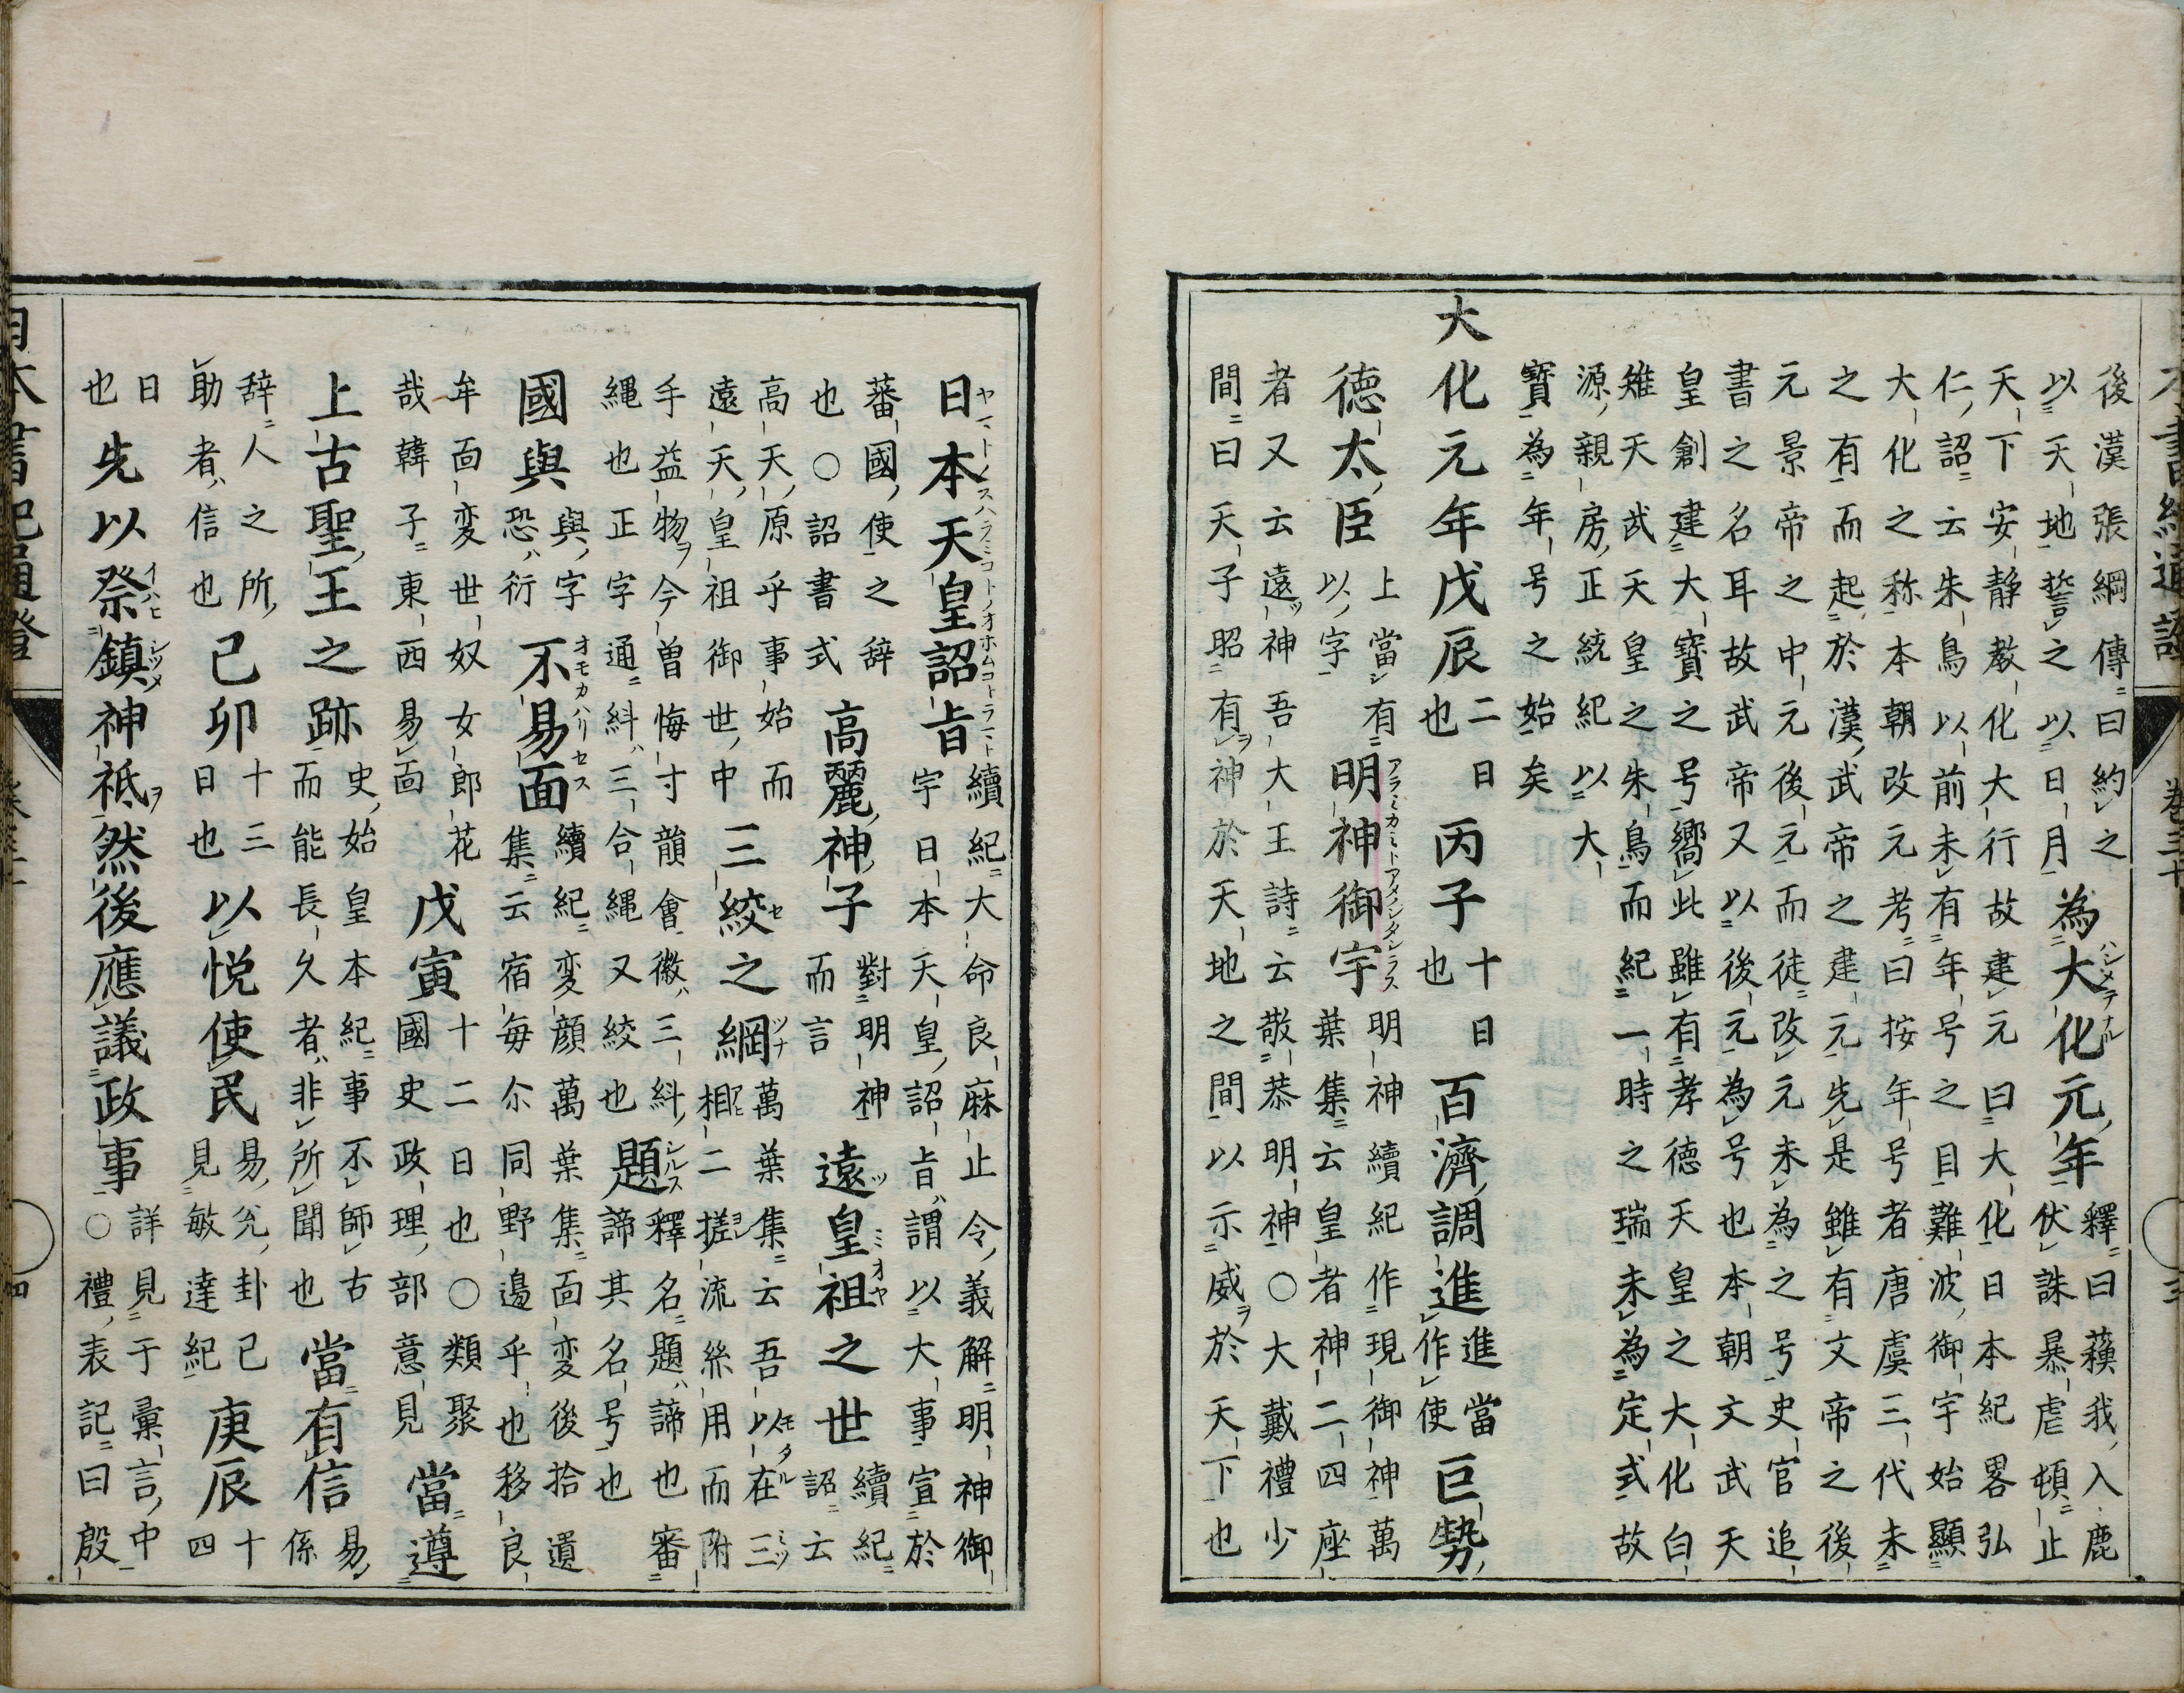 後漢張綱傳曰約之
以天地誓之以日月
為大化元年
釋曰蘓我入鹿
伏誅暴虐頓止
天下安静教化大行故建元曰大化日本紀畧弘
仁詔云朱鳥以前未有年号之目難波御宇始顯
大化之称本朝改元考曰按年号者唐虞三代未
之有而起於漢武帝之建元先是雖有文帝之後
元景帝之中元後元而徒改元未為之号史官追
書之名耳故武帝又以後元為号也本朝文武天
皇創建大寶之号嚮此雖有孝徳天皇之大化白
雉天武天皇之朱鳥而紀一時之瑞未為定式故
源親房正統紀以大
寶為年号之始矣
大化元年戊辰
二日
也
丙子
十日
也
百濟調進
進當
作使
巨勢
徳太臣
上當有
以字
明神御宇
明神續紀作現御神萬
葉集云皇者神二四座
者又云遠神吾大王詩云敬恭明神○大戴禮少
間曰天子昭有神於天地之間以示威於天下也
日本天皇詔旨
續紀大命良麻止令義解明神御
宇日本天皇詔旨謂以大事宣於
蕃國使之辞
也○詔書式
高麗神子
對明神
而言
遠皇祖之世
續紀
詔云
高天原乎事始而
遠天皇祖御世中
三絞之綱
萬葉集云吾以在三
相二搓流絲用而附
手益物今曽悔寸韻會徽三糾
縄也正字通糾三合縄又絞也
題
釋名題諦也審
諦其名号也
國與
與字
恐衍
不易面
續紀変顔萬葉集面変後拾遺
集云宿毎尓同野邉乎也移良
牟面変世奴女郎花
哉韓子東西易面
戊寅
十二日也○類聚
國史政理部意見
當遵
上古聖王之跡
史始皇本紀事不師古
而能長久者非所聞也
當有信
易係
辞人之所
助者信也
己卯
十三
日也
以悦使民
易兊卦已
見敏達紀
庚辰
十四
日
也
先以祭鎮神祇然後應議政事
詳見于彙言中
○禮表記曰殷